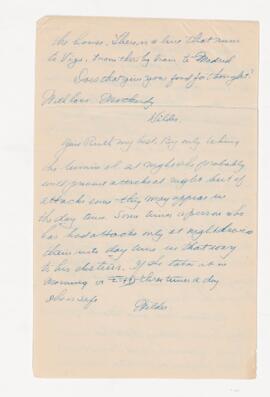 the house. There is a line that runs
to Vigo, & from there by train to Madrid
Does that give you food for thought?
With love. Most
Wilder
Give Ruth my best. By only taking
the at night she probably
will prevent attacks at night but if
attacks come they may appear in
the day time. Some times a person who
has had attacks only at night
them into day time in that way
to his distress. If she takes it in
morning or three times a day
she is safe
Wilder